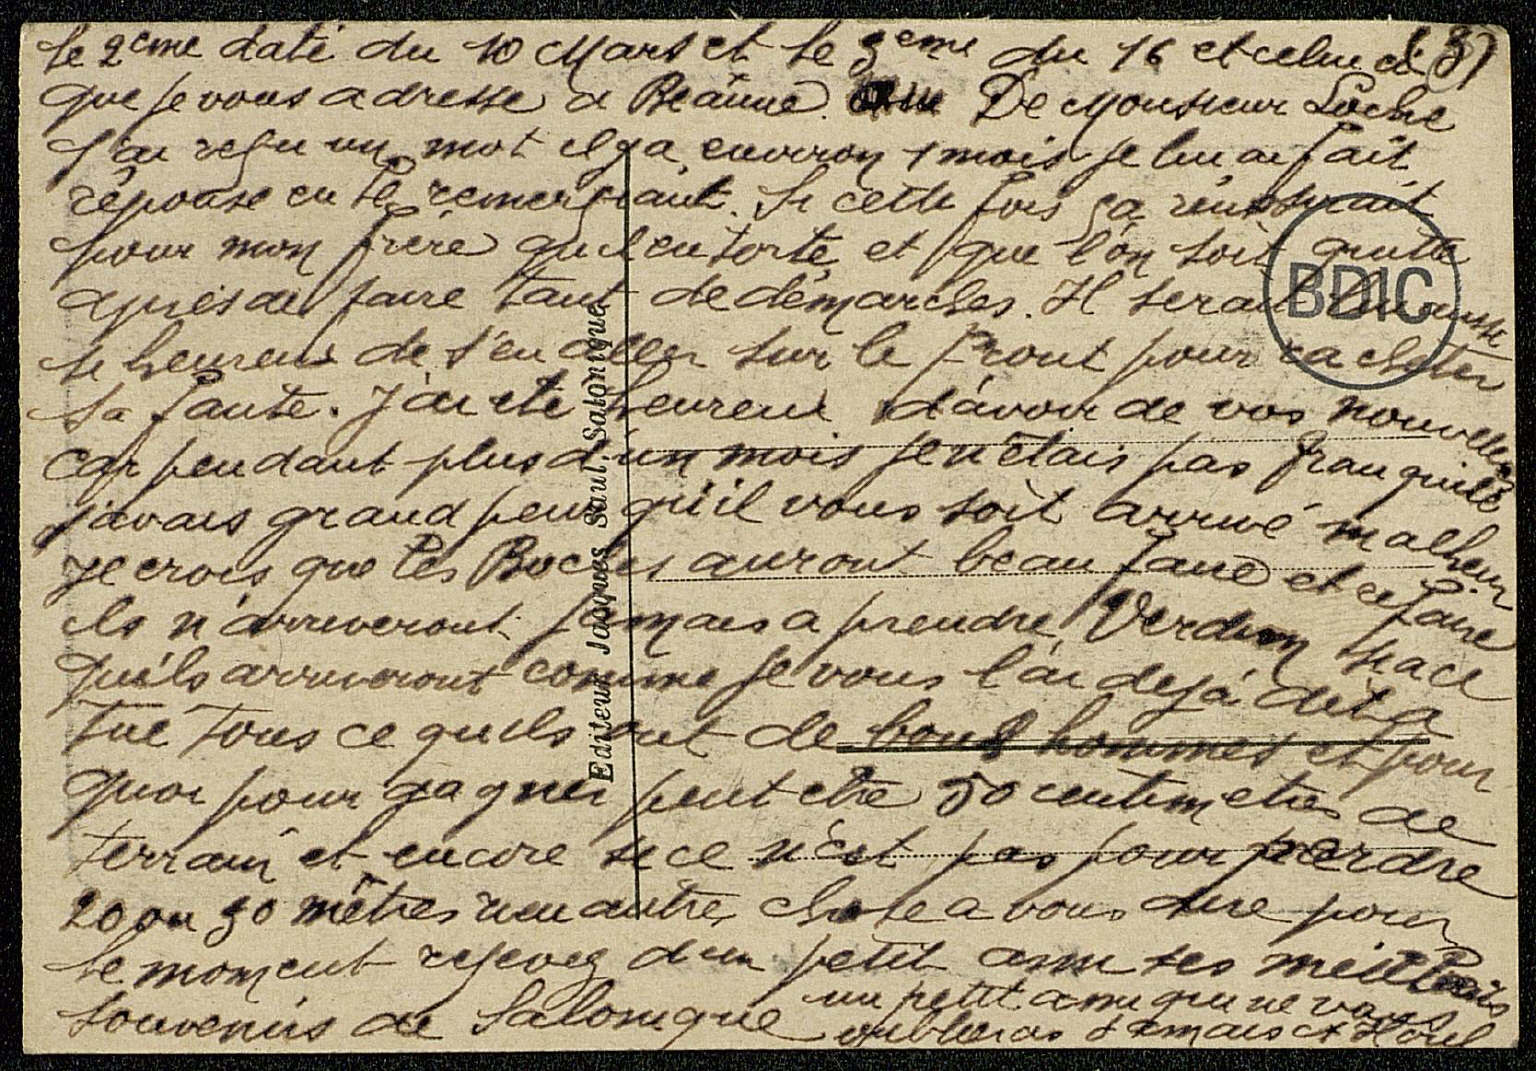 le 2eme daté du 10 Mars et le 3eme du 16 et celui ci (3)
que je vous adresse a Beaune. De Monsieur Loche
j'ai reçu un mot il y a environ 1 mois je lui ai fait
réponse en le remerciant. Si cette fois ça réussirait
pour mon frère qu'il en sorte et que l'on soit quitte
après de faire tant de démarches. Il serait lui aussi
si heureux de s'en aller sur le Front pour racheter
sa faute. J'ai été heureux d'avoir de vos nouvelles
car pendant plus d'un mois je n'étais pas tranquille
j'avais grand peur qu'il vous soit arrivé malheur
je crois que les Boches auront beau faire et ce faire
ils n'arriveront jamais a prendre Verdun
qu'ils arriveront comme je vous l'ai dejà dit a
tué tous ce qu'ils ont de bons hommes et pour
quoi pour gagner peut etre 50 centimetres de
terrain et encore si ce n'est pas pour perdre
20 ou 30 mètres rien autre chose a vous dire pour
le moment reçevez d'un petit ami ses meilleurs
souvenirs de Salonique un petit ami qui ne vous
oublieras jamais
Editeur Jacques Saul, Salonique
BDIC